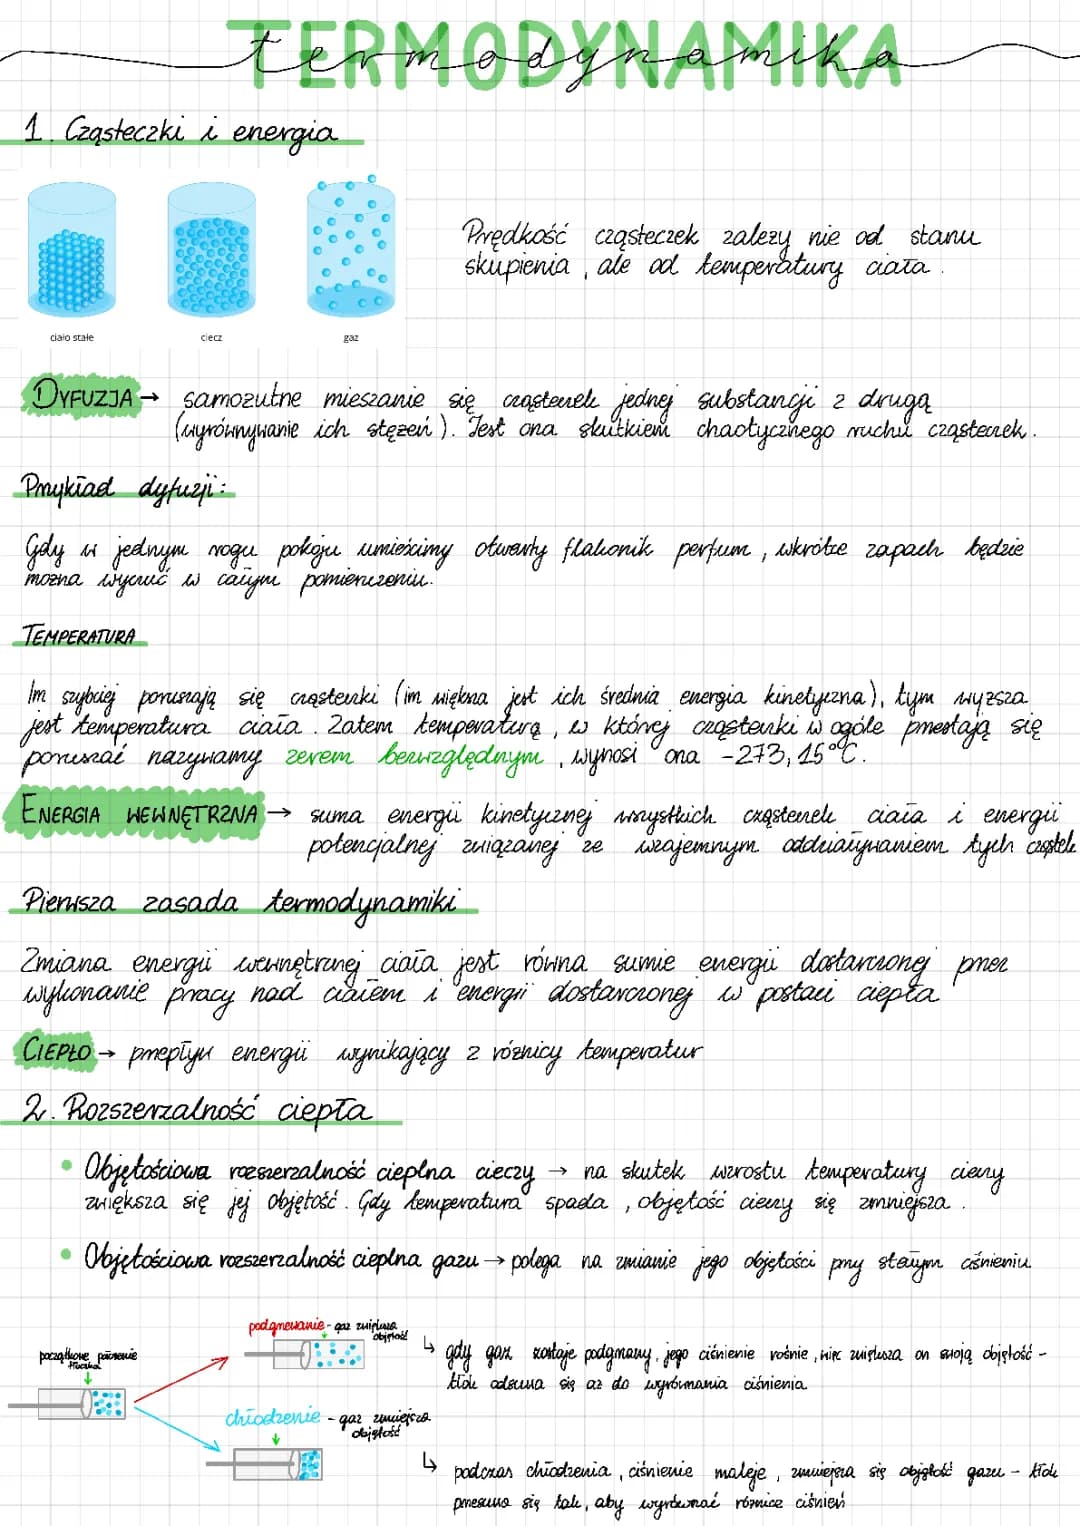 TERMODYNAMIKA
termodynamika
1. Cząsteczki i energia
ciało stałe
ciecz
gaz
Prędkość cząsteczek zależy nie od stanu
skupienia, ale od temperatury ciała.
DYFUZJA → samorzutne mieszanie się cząsteczek jednej substancji z drugą
(wyrównywanie ich stężeń). Jest ona skutkiem chaotycznego ruchu cząsteczek.
Przykład dyfuzji:
Gdy w jednym rogu pokoju umieścimy otwarty flakonik perfum, wkrótce zapach będzie
można wyczuć w całym pomieszczeniu.
TEMPERATURA
Im szybciej poruszają się cząsteczki (im większa jest ich średnia energia kinetyczna), tym wyższa
jest temperatura ciała. Zatem temperaturę, w której cząsteczki w ogóle przestają się
poruszać nazywamy zerem bezwzględnym, wynosi ona -273,15°C.
ENERGIA WEWNĘTRZNA → suma energii kinetycznej wszystkich cząsteczek ciała i energii
potencjalnej związanej ze wzajemnym oddziaływaniem tych cząstek
Pierwsza zasada termodynamiki
Zmiana energii wewnętrznej ciała jest równa sumie energii dostarczonej przez
wykonanie pracy nad ciałem i energii dostarczonej w postaci ciepła
CIEPŁO → przepływ energii wynikający z różnicy temperatur
2. Rozszerzalność ciepła
• Objętościowa rozszerzalność cieplna cieczy → na skutek wzrostu temperatury cieczy
zwiększa się jej objętość. Gdy temperatura spada, objętość cieczy się zmniejsza.
• Objętościowa rozszerzalność cieplna gazu → polega na zmianie jego objętości przy stałym ciśnieniu
początkowe położenie
tłoczka
podgrzewanie - gaz zwiększa
objętość
↳ gdy gaz zostaje podgrzany, jego ciśnienie rośnie, więc zwiększa on swoją objętość -
tłok odsuwa się aż do wyrównania ciśnienia
chłodzenie - gaz zmniejsza
objętość
↳ podczas chłodzenia, ciśnienie maleje, zmniejsza się objętość gazu - tłok
przesuwa się tak, aby wyrównać różnice ciśnień